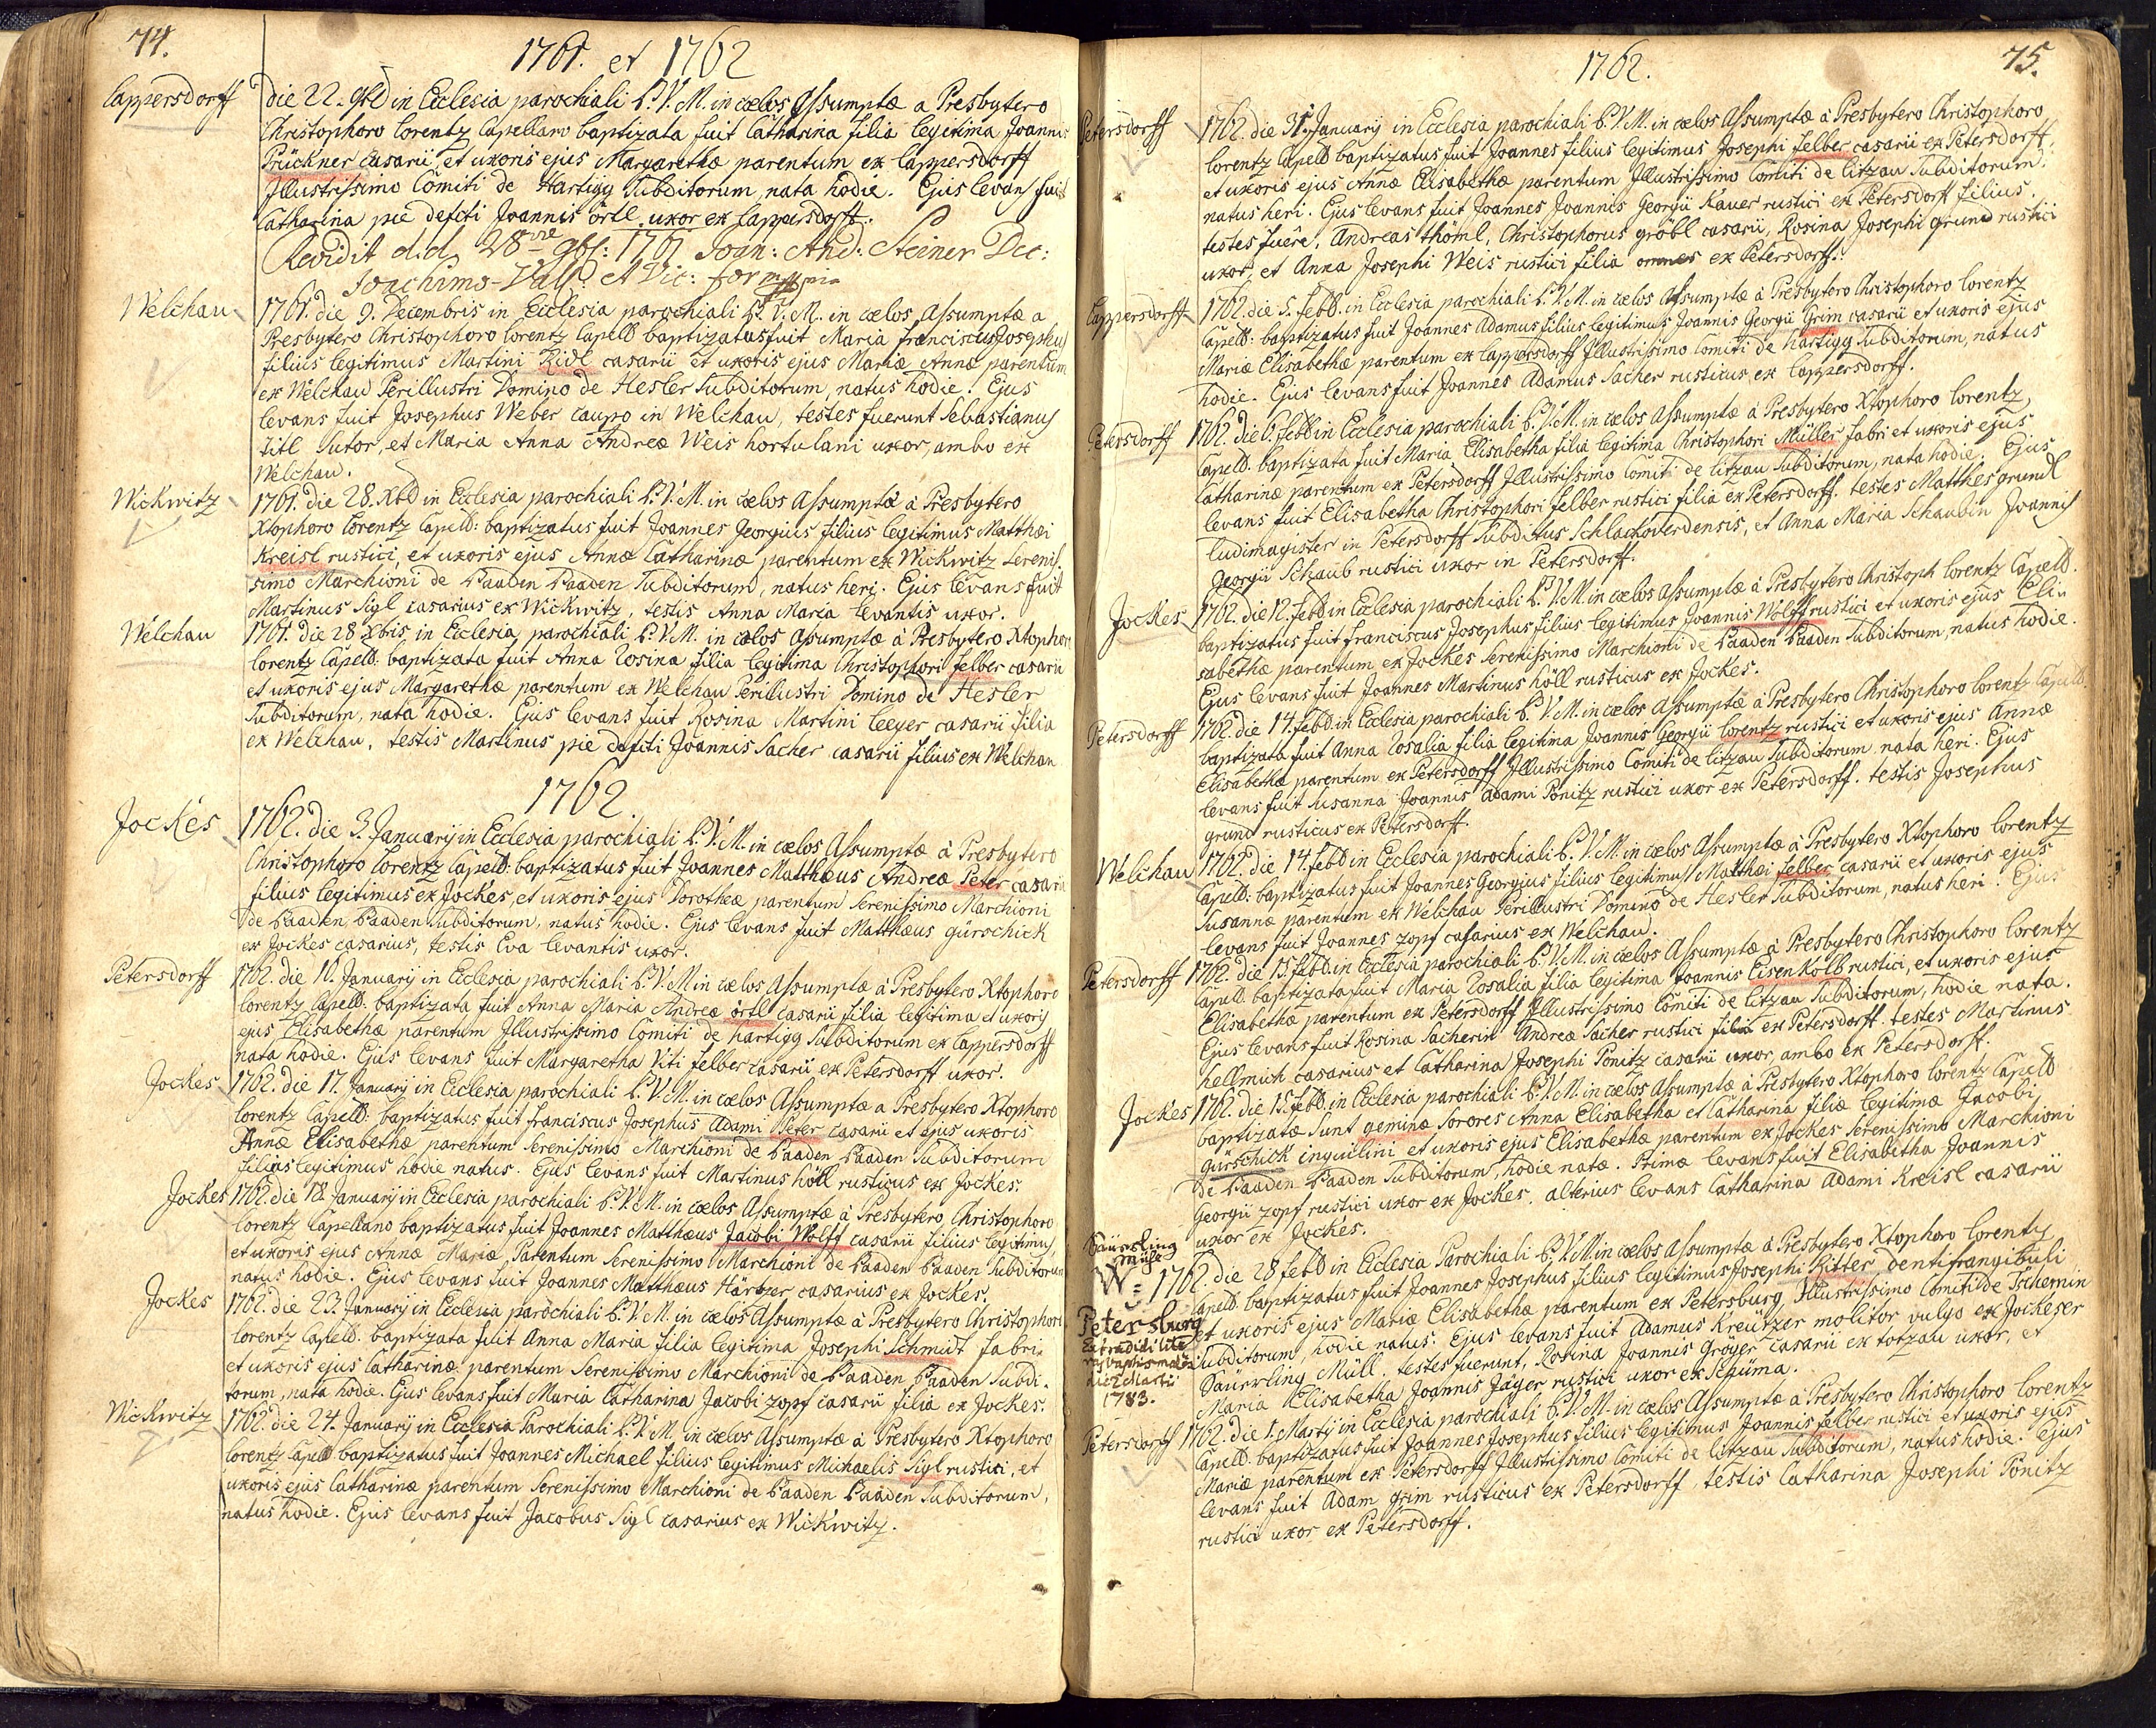 74.
1761. et 1762
Cappersdorff
die 22. 9br in Ecclesia parochiali B. V. M. in cœlos Assumptæ a Presbytero
Christophoro Lorentz Capellano baptizata fuit Catharina filia legitima Joannis
Prückner casarii et uxoris ejus Margarethæ parentum ex Cappersdorff
Illustrissimo Comiti de Hartigg Subditorum, nata hodie. Ejus levans fuit
Catharina pie defcti Joannis örtl uxor ex Cappersdorff.
Revidit d.d. 28 9br: 1761 Joan: And: Steiner Dec:
Joachimo-Vall: et Vic: for
Welchau
1761. die 9. Decembris in Ecclesia parochiali B. V. M. in cœlos Assumptæ a
Presbytero Christophoro Lorentz Capell baptizatus fuit Maria franciscus Josephus
filius legitimus Martini Ridl casarii et uxoris ejus Mariæ Annæ parentum
ex Welchau Perillustri Domino de Hesler Subditorum, natus hodie. Ejus
levans fuit Josephus Weber caupo in Welchau, testes fuerunt Sebastianus
titl Sutor, et Maria Anna Andreæ Weis hortulani uxor, ambo ex
Welchau.
Wickwitz
1761. die 28. Xbr in Ecclesia parochiali B. V. M. in cœlos Assumptæ à Presbytero
Xtophoro Lorentz Capell: baptizatus fuit Joannes Georgius filius legitimus Matthæi
Kreisl rustici, et uxoris ejus Annæ Catharinæ parentum ex Wickwitz Serenis-
simo Marchioni de Baaden Baaden Subditorum, natus heri. Ejus levans fuit
Martinus Sigl casarius ex Wickwitz, testis Anna Maria levantis uxor.
Welchau
1761. die 28 Xbris in Ecclesia parochiali B. V. M. in cœlos assumptæ à Presbytero Xtophoro
Lorentz Capell: baptizata fuit Anna Rosina filia legitima Christophori felber casarii
et uxoris ejus Margarethæ parentum ex Welchau Perillustri Domino de Hesler
Subditorum, nata hodie. Ejus levans fuit Rosina Martini Leeyer casarii filia
ex Welchau, testis Martinus pie defcti Joannis Sacher casarii filius ex Welchau
1762.
Jockes
1762. die 3. January in Ecclesia parochiali B. V. M. in cœlos Assumptæ à Presbytero
Christophoro Lorentz Capell: baptizatus fuit Joannes Matthæus Andreæ Peter casarii
filius legitimus ex Jockes, et uxoris ejus Dorotheæ parentum Serenissimo Marchioni
de Baaden Baaden Subditorum, natus hodie. Ejus levans fuit Matthæus gürschick
ex Jockes casarius, testis Eva levantis uxor.
Petersdorff
1762. die 16. January in Ecclesia parochiali B. V. M. in cœlos Assumptæ à Presbytero Xtophoro
Lorentz Capell: baptizata fuit Anna Maria Andreæ örtl casarii filia legitima et uxoris
ejus Elisabethæ parentum Illustrissimo Comiti de hartigg Subditorum ex Cappersdorff
nata hodie. Ejus levans fuit Margaretha Viti felber casarii ex Petersdorff uxor.
Jockes
1762. die 17. January in Ecclesia parochiali B. V. M. in cœlos Assumptæ a Presbytero Xtophoro
Lorentz Capell: baptizatus fuit franciscus Josephus Adami Peter casarii et ejus uxoris
Annæ Elisabethæ parentum Serenissimo Marchioni de Baaden Baaden Subditorum
filius legitimus hodie natus. Ejus levans fuit Martinus höll rusticus ex Jockes.
Jockes
1762. die 18. January in Ecclesia parochiali B. V. M. in cœlos Assumptæ à Presbytero Christophoro
Lorentz Capellano baptizatus fuit Joannes Matthæus Jacobi Wolff casarii filius legitimus
et uxoris ejus Annæ Mariæ, Parentum Serenissimo Marchioni de Baaden Baaden Subditorum
natus hodie. Ejus levans fuit Joannes Matthæus Härtzer casarius ex Jockes.
Jockes
1762. die 23. January in Ecclesia parochiali B. V. M. in cœlos Assumptæ à Presbytero Christophoro
Lorentz Capell: baptizata fuit Anna Maria filia legitima Josephi Schmidt fabri
et uxoris ejus Catharinæ parentum Serenissimo Marchioni de Baaden Baaden Subdi-
torum, nata hodie. Ejus levans fuit Maria Catharina Jacobi zopf casarii filia ex Jockes.
Wickwitz
1762. die 24. January in Ecclesia Parochiali B. V. M. in cœlos Assumptæ à Presbytero Xtophoro
Lorentz Capell baptizatus fuit Joannes Michael filius legitimus Michaelis Sigl rustici, et
uxoris ejus Catharinæ parentum Serenissimo Marchioni de Baaden Baaden Subditorum,
natus hodie. Ejus levans fuit Jacobus Sigl casarius ex Wickwitz.
75.
1762.
Petersdorff
1762. die 31. January in Ecclesia parochiali B. V. M. in cœlos Assumptæ à Presbytero Christophoro
Lorentz Capell baptizatus fuit Joannes filius legitimus Josephi felber casarii ex Petersdorff
et uxoris ejus Annæ Elisabethæ parentum Illustrissimo Comiti de Litzau Subditorum
natus heri. Ejus levans fuit Joannes Joannis Georgii Kauer rustici ex Petersdorff filius.
testes fuere, Andreas thöml, Christophorus gröbl casarii, Rosina Josephi grund rustici
uxor, et Anna Josephi Weis rustici filia omnes ex Petersdorff.
Cappersdorff
1762. die 5. febr. in Ecclesia parochiali B. V. M. in cœlos Assumptæ à Presbytero Christophoro Lorentz
Capell: baptizatus fuit Joannes Adamus filius legitimus Joannis Georgii Grim casarii et uxoris ejus
Mariæ Elisabethæ parentum ex Cappersdorff Illustrissimo Comiti de hartigg Subditorum, natus
hodie. Ejus levans fuit Joannes Adamus Sacher rusticus ex Cappersdorff.
Petersdorff
1762. die 6. febr in Ecclesia parochiali B. V. M. in cœlos Assumptæ à Presbytero Xtophoro Lorentz
Capell. baptizata fuit Maria Elisabetha filia legitima Christophori Müller fabri et uxoris ejus
Catharinæ parentum ex Petersdorff Illustrissimo Comiti de Litzau Subditorum, nata hodie. Ejus
levans fuit Elisabetha Christophori felber rustici filia ex Petersdorff. testes Matthes grundl
ludimagister in Petersdorff Subditus Schlackoverdensis, et Anna Maria Schaubin Joannis
Georgii Schaub rustici uxor in Petersdorff.
Jockes
1762. die 12. febr in Ecclesia parochiali B. V. M. in cœlos assumptæ à Presbytero Christoph Lorentz Capell.
baptizatus fuit franciscus Josephus filius legitimus Joannis Wolff rustici et uxoris ejus Eli-
sabethæ parentum ex Jockes Serenissimo Marchioni de Baaden Baaden Subditorum, natus hodie.
Ejus levans fuit Joannes Martinus höll rusticus ex Jockes.
Petersdorff
1762. die 14. febr. in Ecclesia parochiali B. V. M. in cœlos Assumptæ à Presbytero Christophoro Lorentz Capell
baptizata fuit Anna Rosalia filia legitima Joannis Georgii Lorentz rustici et uxoris ejus Annæ
Elisabethæ parentum ex Petersdorff Illustrissimo Comiti de Litzau Subditorum nata heri. Ejus
levans fuit Susanna Joannis Adami Ponitz rustici uxor ex Petersdorff. testis Josephus
grund rusticus ex Petersdorff.
Welchau
1762. die 14. febr in Ecclesia parochiali B. V. M. in cœlos Assumptæ à Presbytero Xtophoro Lorentz
Capell: baptizatus fuit Joannes Georgius filius legitimus Matthæi felber casarii et uxoris ejus
Susannæ parentum ex Welchau Perillustri Domino de Hesler Subditorum, natus heri. Ejus
levans fuit Joannes zopf casarius ex Welchau.
Petersdorff
1762. die 15. febr. in Ecclesia parochiali B. V. M. in cœlos Assumptæ à Presbytero Christophoro Lorentz
Capell baptizata fuit Maria Rosalia filia legitima Joannis EisenKolb rustici, et uxoris ejus
Elisabethæ parentum ex Petersdorff Illustrissimo Comiti de Litzau Subditorum, hodie nata.
Ejus levans fuit Rosina Sacherin Andreæ Sacher rustici filia ex Petersdorff. testes Martinus
hellmich casarius et Catharina Josephi Ponitz casarii uxor, ambo ex Petersdorff.
Jockes
1762. die 15. febr. in Ecclesia parochiali B. V. M. in cœlos Assumptæ à Presbytero Xtophoro Lorentz Capell
baptizatæ sunt geminæ Sorores Anna Elisabetha et Catharina filiæ legitimæ Jacobi
gürschick inquilini et uxoris ejus Elisabethæ parentum ex Jockes Serenissimo Marchioni
de Baaden Baaden Subditorum, hodie natæ. Primæ levans fuit Elisabetha Joannis
Georgii zopf rustici uxor ex Jockes. alterius levans Catharina Adami Kreisl casarii
uxor ex Jockes.
Säuerling
Mühl
W:
Petersburg
Extradidi lite
ras baptismales
die 2 Martii
1783.
1762 die 28 febr in Ecclesia Parochiali B. V. M. in cœlos Assumptæ à Presbytero Xtophoro Lorentz
Capell baptizatus fuit Joannes Josephus filius legitimus Josephi Ritter dentifrangibuli
et uxoris ejus Mariæ Elisabethæ parentum ex Petersburg, Illustrissimo Comiti de Tschernin
Subditorum, hodie natus. Ejus levans fuit Adamus Kreützer molitor vulgo ex Jockeser
Säuerling Müll. testes fuerunt, Rosina Joannis Gröyer casarii ex totzau uxor, et
Maria Elisabetha Joannis Jäger rustici uxor ex Schüma.
Petersdorff
1762. die 1. Martij in Ecclesia parochiali B. V. M. in cœlos Assumptæ à Presbytero Christophoro Lorentz
Capell. baptizatus fuit Joannes Josephus filius legitimus Joannis felber rustici et uxoris ejus
Mariæ parentum ex Petersdorff Illustrissimo Comiti de Litzau Subditorum, natus hodie. Ejus
levans fuit Adam Grim rusticus ex Petersdorff, testis Catharina Josephi Ponitz
rustici uxor ex Petersdorff.